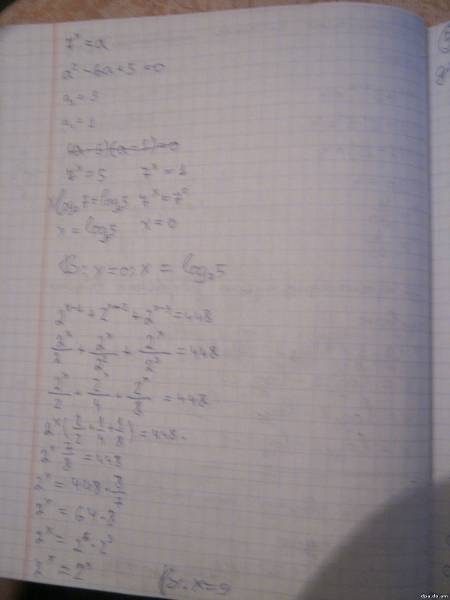 7ˣ = a
a² - 6a + 5 = 0
a₁ = 5
a₂ = 1
7ˣ = 5 7ˣ = 1
x log₇7 = log₇5 7ˣ = 7⁰
x = log₇5 x = 0
В: x = 0; x = log₇5
2ˣ⁻¹ + 2ˣ⁻² + 2ˣ⁻³ = 448
2ˣ/2 + 2ˣ/2² + 2ˣ/2³ = 448
2ˣ/2 + 2ˣ/4 + 2ˣ/8 = 448
2ˣ(1/2 + 1/4 + 1/8) = 448
2ˣ 7/8 = 448
2ˣ = 448 · 8/7
2ˣ = 64 · 8
2ˣ = 2⁶ · 2³
2ˣ = 2⁹ В: x = 9
dpa.da.am